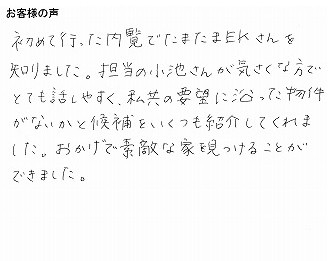 お客様の声
初めて行った内覧でたまたまEKさんを
知りました。担当の小池さんが気さくな方で
とても話しやすく、私共の要望に沿った物件
がないかと候補をいくつも紹介してくれま
した。おかげで素敵な家を見つけることが
できました。